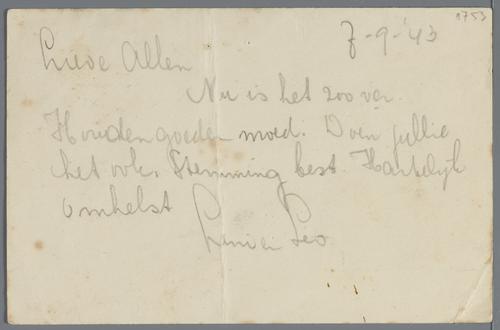 1753
7-9-'43
Lieve Allen
Nu is het zoover.
Houden goeden moed. Doen jullie
het ook. Stemming best. Hartelijk
omhelst
en Leo